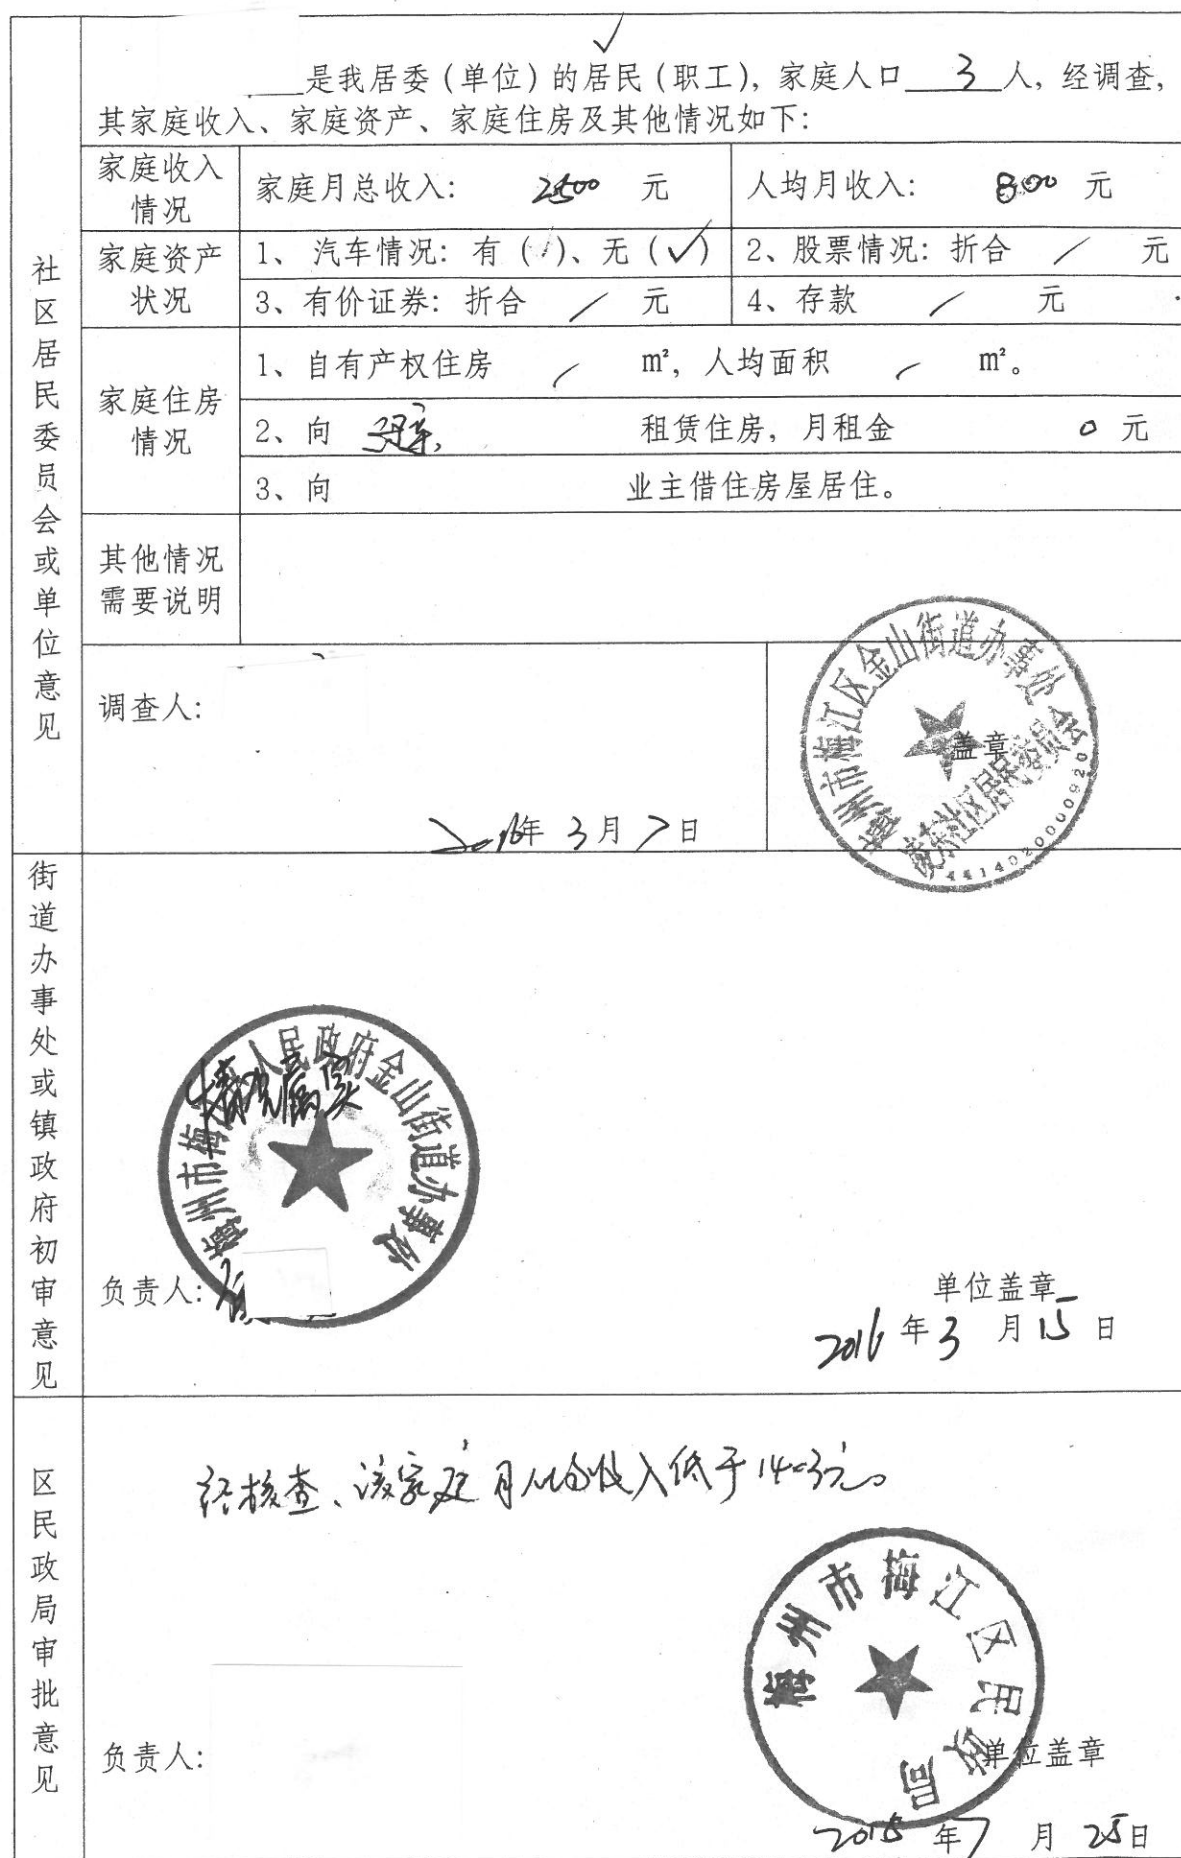 ✓
是我居委(单位)的居民(职工),家庭人口 3 人,经调查,
其家庭收入、家庭资产、家庭住房及其他情况如下:
社区居民委员会或单位意见
家庭收入情况
家庭月总收入: 2500 元
人均月收入: 800 元
家庭资产状况
1、汽车情况:有( )、无(✓)
2、股票情况:折合 / 元
3、有价证券:折合 / 元
4、存款 / 元
家庭住房情况
1、自有产权住房 / m²,人均面积 / m²。
2、向 租赁住房,月租金 0 元
3、向 业主借住房屋居住。
其他情况需要说明
调查人:
盖章
梅州市梅江区金山街道办事处
社区居民委员会
4414020000920
2016年 3月 7日
街道办事处或镇政府初审意见
情况属实
梅州市梅 人民政府金山街道办事处
负责人:
单位盖章
2016年 3月 15日
区民政局审批意见
经核查、该家庭月人均收入低于1403元。
梅州市梅江区民政局
负责人:
单位盖章
年 7月 25日